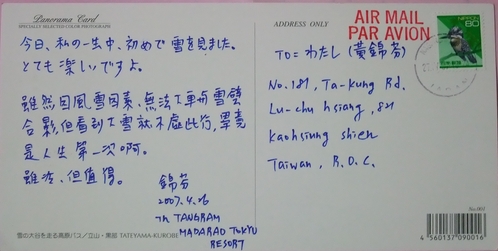 Panorama Card
SPECIALLY SELECTED COLOR PHOTOGRAPH
今日、私の一生中、初めて雪を見ました。
とても楽しいですよ。
雖然因風雪因素,無法下車與雪壁
合影,但看到了雪就不虛此行,畢竟
是人生第一次啊。
雖冷、但值得。
錦芬
2007.4.26
in TANGRAM
MADARAO TOKYU
RESORT
雪の大谷を走る高原バス/立山・黒部 TATEYAMA-KUROBE
ADDRESS ONLY
AIR MAIL
PAR AVION
NIPPON
80
To=わたし(黃錦芬)
No.181, Ta-kung Rd.
Lu-chu hsiang, 821
Kaohsiung shien
Taiwan, R.O.C.
4 560137 090016